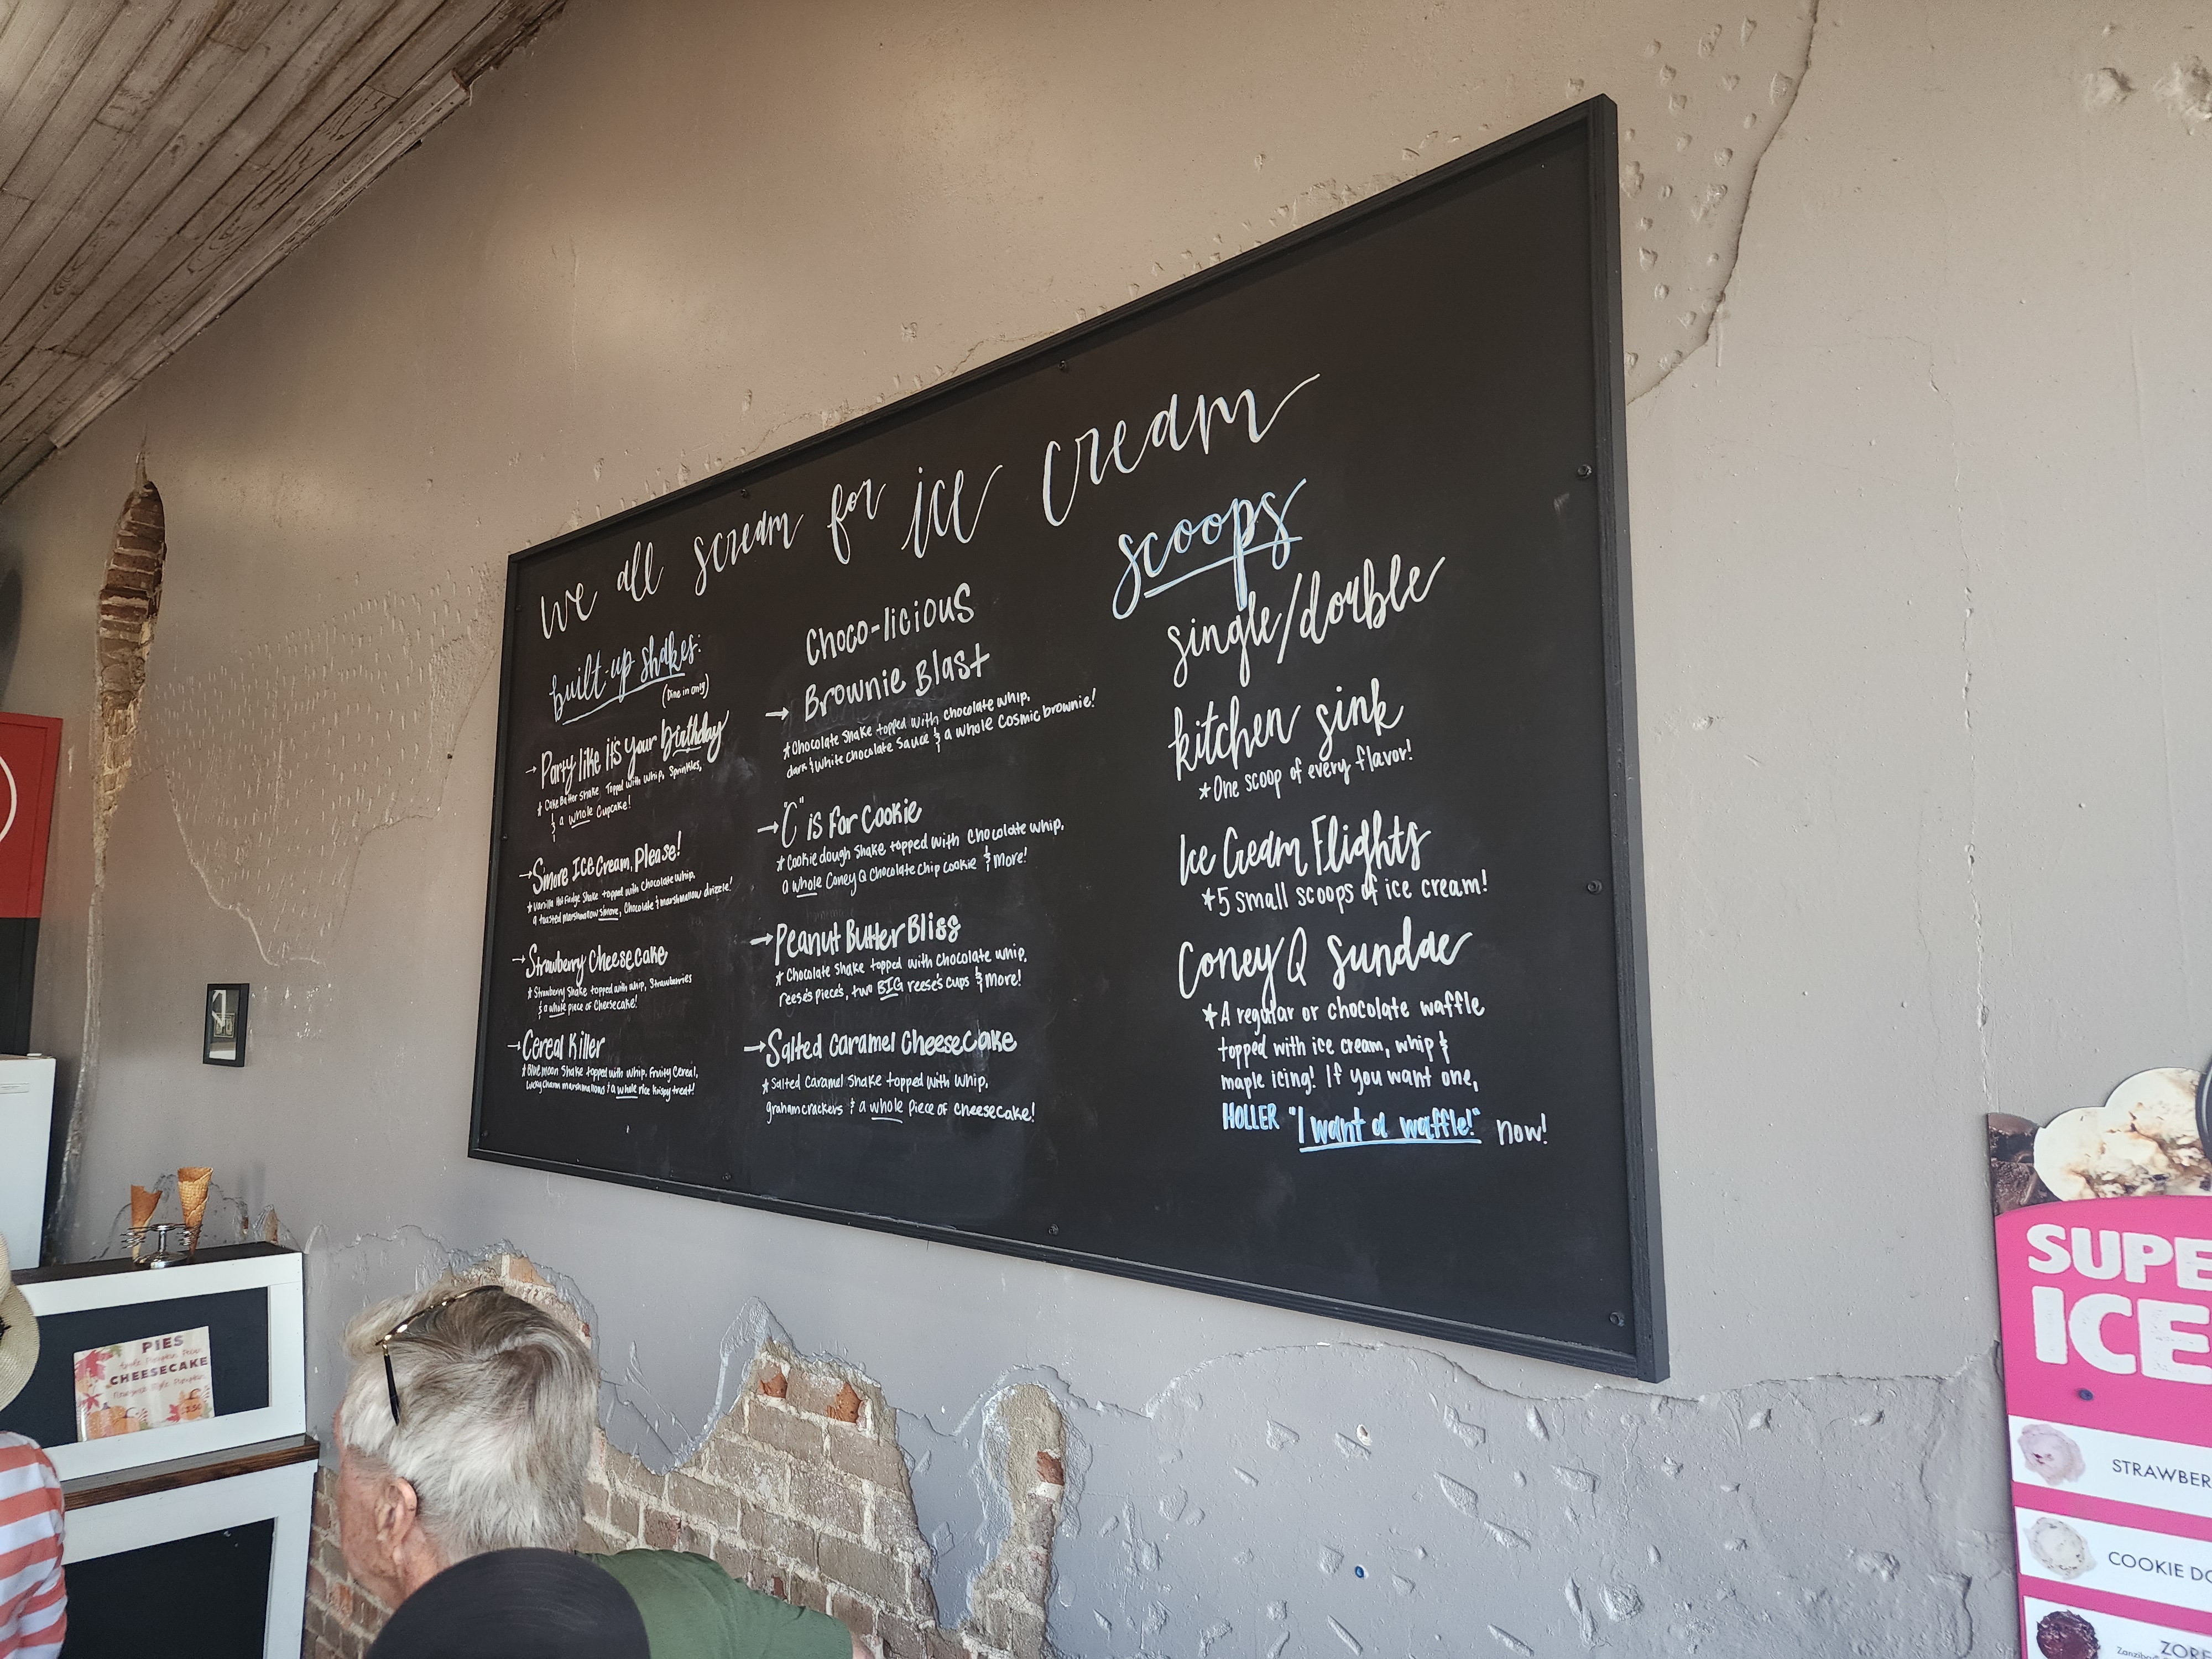 we all scream for ice cream
built-up shakes:
(Dine in only)
→ Party like it's your birthday
* Cake Batter Shake Topped with whip, Sprinkles,
& a whole Cupcake!
→ S'more Ice Cream, Please!
* Vanilla Hot Fudge Shake topped with Chocolate whip,
a toasted marshmallow s'more, Chocolate & marshmallow drizzle!
→ Strawberry Cheesecake
* Strawberry Shake topped with whip, Strawberries
& a whole piece of Cheesecake!
→ Cereal Killer
* Blue moon Shake topped with whip, Fruity Cereal,
Lucky Charm marshmallows & a whole rice krispy treat!
Choco-licious
→ Brownie Blast
* Chocolate Shake topped with chocolate whip,
dark & white chocolate sauce & a whole Cosmic brownie!
→ "C" is For Cookie
* Cookie dough Shake topped with Chocolate whip,
a whole Coney Q Chocolate Chip Cookie & more!
→ Peanut Butter Bliss
* Chocolate Shake topped with Chocolate whip,
reese's pieces, two BIG reese's cups & more!
→ Salted Caramel Cheesecake
* Salted Caramel Shake topped with whip,
graham crackers & a whole piece of cheesecake!
scoops
single/double
kitchen sink
* One scoop of every flavor!
Ice Cream Flights
* 5 small scoops of ice cream!
Coney Q Sundae
* A regular or chocolate waffle
topped with ice cream, whip &
maple icing! If you want one,
HOLLER "I want a waffle!" now!
PIES
CHEESECAKE
SUPE
ICE
STRAWBER
COOKIE DO